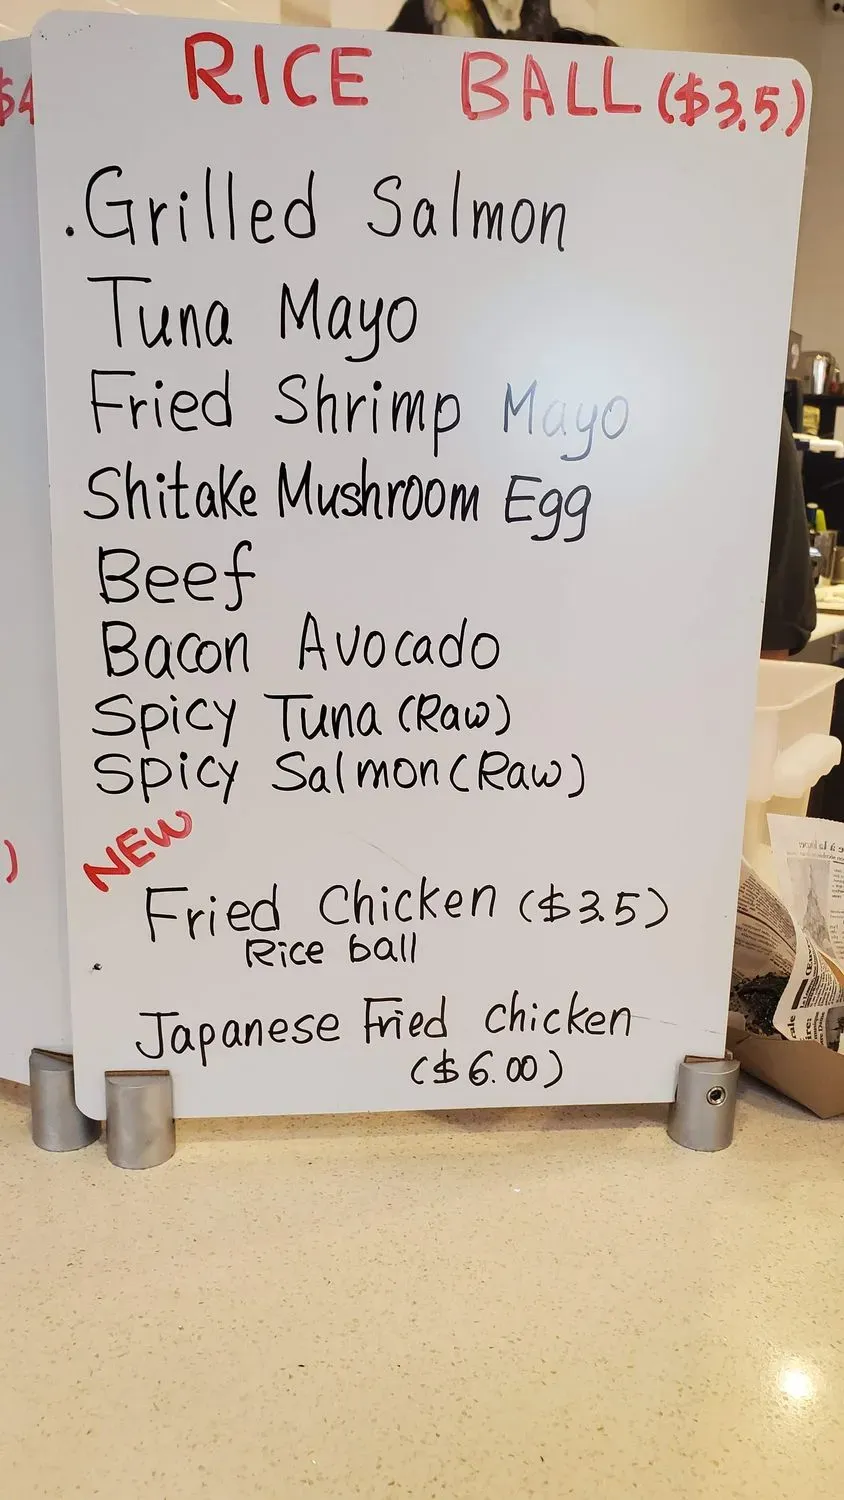 $4
RICE BALL ($3.5)
.Grilled Salmon
Tuna Mayo
Fried Shrimp Mayo
Shitake Mushroom Egg
Beef
Bacon Avocado
Spicy Tuna (Raw)
Spicy Salmon (Raw)
)
NEW
Fried Chicken ($3.5)
Rice ball
Japanese Fried chicken
($6.00)